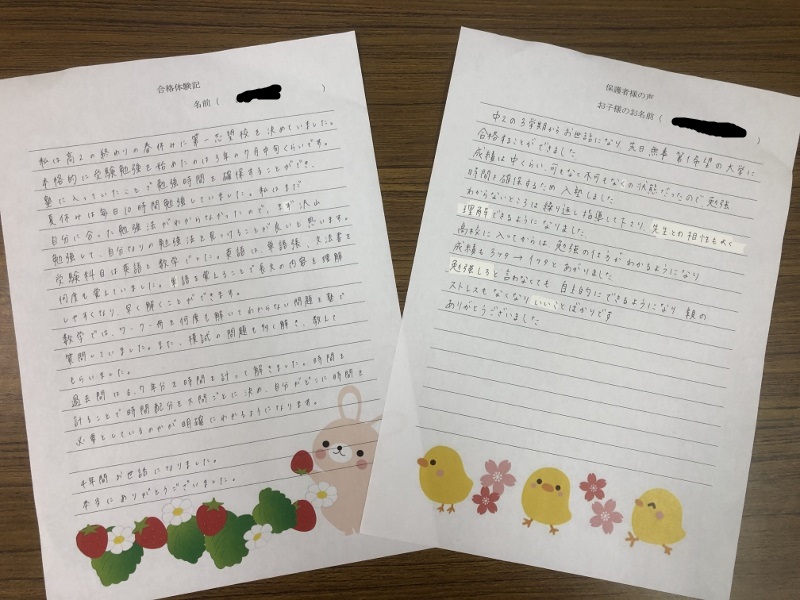 合格体験記
名前（　　　）
私は高2の終わりの春休みに第一志望校を決めていました。
本格的に受験勉強を始めたのは3年の7月中旬くらいです。
塾に入っていたことで勉強時間を確保することができ、
夏休みは毎日10時間勉強していました。私はまだ
自分に合った勉強法がわからなかったので、まず沢山
勉強して、自分なりの勉強法を見つけることが良いと思います。
受験科目は英語と数学でした。英語は、単語帳、文法書を
何度も覚えていました。単語を覚えることで長文の内容を理解
しやすくなり、早く解くことができます。
数学では、ワーク一冊を何度も解いてわからない問題を塾で
質問していました。また、模試の問題も列く解き、教えて
もらいました。
過去問は6、7年分を時間を計って解きました。時間を
計ることで時間配分を大問ごとに決め、自分がどこに時間を
必要としているのかが明確にわかるようになります。
4年間お世話になりました。
本当にありがとうございました。
保護者様の声
お子様のお名前（　　　）
中2の3学期からお世話になり、先日無事第1希望の大学に
合格することができました
成績は中くらい 可もなく不可もなくの状態だったので、勉強
時間を確保するため入塾しました
わからないところは繰り返し指導して下さり、先生との相性もよく
理解できるようになりました。
高校に入ってからは勉強の仕方がわかるようになり
成績も3ケタ→1ケタとあがりました
勉強しろと言わなくても 自主的にできるようになり 親の
ストレスもなくなり いいことばかりです
ありがとうございました